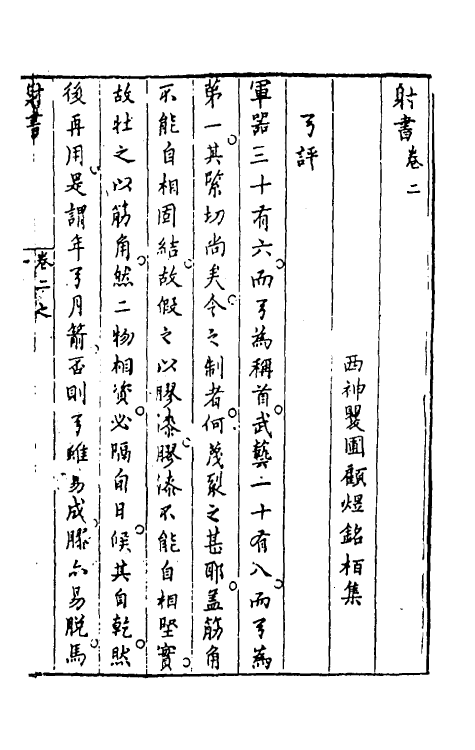 射書卷二
西神矍圃顧煜銘栢集
弓評
軍器三十有六而弓為稱首武藝一十有八而弓為
第一其緊切尚矣今之制者何蔑裂之甚耶盖筋角
不能自相固結故假之以膠漆膠漆不能自相堅實
故壮之以筋角然二物相資必隔旬日候其自乾然
後再用是謂年弓月箭否則弓雖易成膠亦易脫馬
射書
卷二之
一